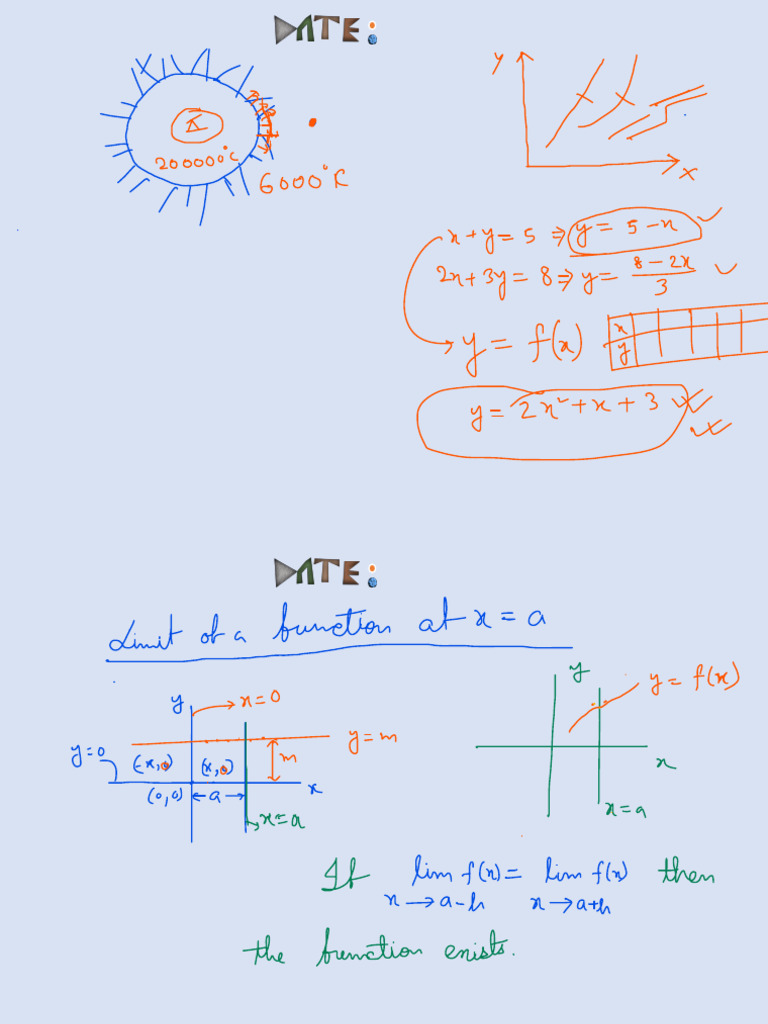 DATE:
200000°C
6000°K
y
x
x+y = 5 ⇒ y = 5-x
2x+3y = 8 ⇒ y = (8-2x)/3
y = f(x)
x
y
y = 2x²+x+3
DATE:
Limit of a function at x = a
y
x=0
y=0
(-x,0)
(x,0)
m
y=m
(0,0)
a
x
x=a
y
y = f(x)
x
x=a
If lim f(x) = lim f(x) then
x→a-h x→a+h
the function exists.